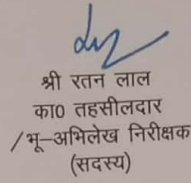 श्री रतन लाल
का0 तहसीलदार
/भू–अभिलेख निरीक्षक
(सदस्य)